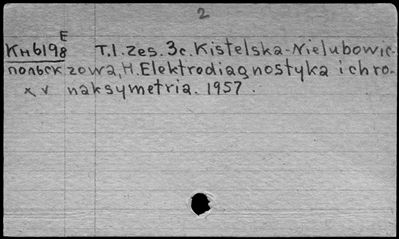 2
E
Кн6198 T.1.zes.3c.Kistelska-Nielubowic-
польск zowa, H. Elektrodiagnostyka i chro-
x v naksymetria. 1957.